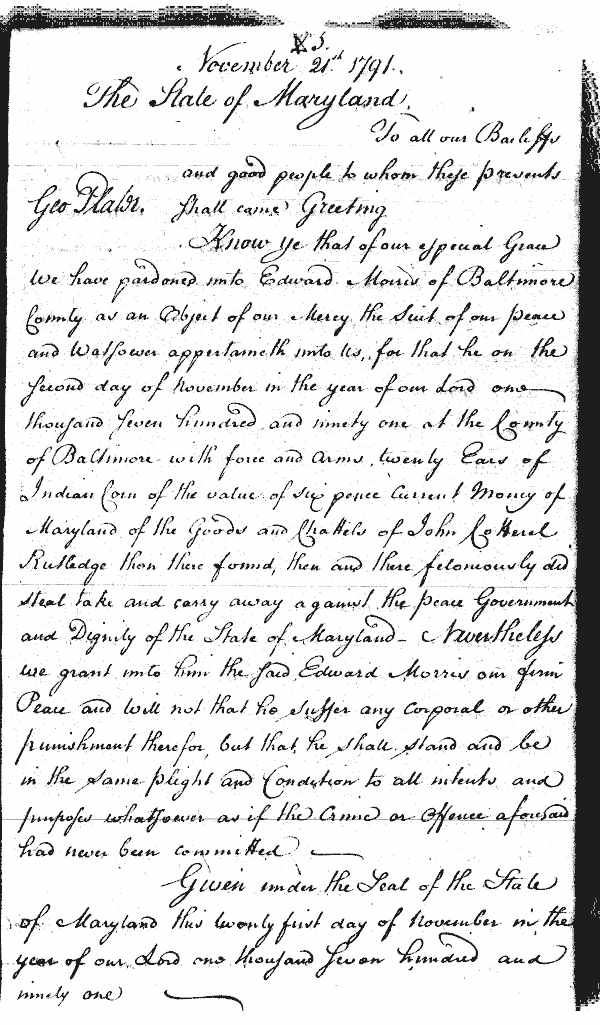 5.
November 21st 1791.
The State of Maryland.
To all our Bailiffs
and good people to whom these presents
Geo Plater. shall come Greeting
Know ye that of our especial Grace
We have pardoned unto Edward Morris of Baltimore
County as an Object of our Mercy the Suit of our peace
and Watsoever appertaineth unto Us, for that he on the
second day of November in the year of our Lord one
thousand seven hundred and ninety one at the County
of Baltimore with force and arms, twenty Ears of
Indian Corn of the value of six pence Current Money of
Maryland of the Goods and Chattels of John Cotterel
Rutledge then there found, then and there feloniously did
steal take and carry away against the peace Government
and Dignity of the State of Maryland - Nevertheless
we grant unto him the said Edward Morris our firm
Peace and will not that he suffer any corporal or other
punishment therefor, but that he shall stand and be
in the same plight and Condition to all intents and
purposes whatsoever as if the Crime or Offence aforesaid
had never been committed
Given under the Seal of the State
of Maryland this twenty first day of November in the
year of our Lord one thousand seven hundred and
ninety one